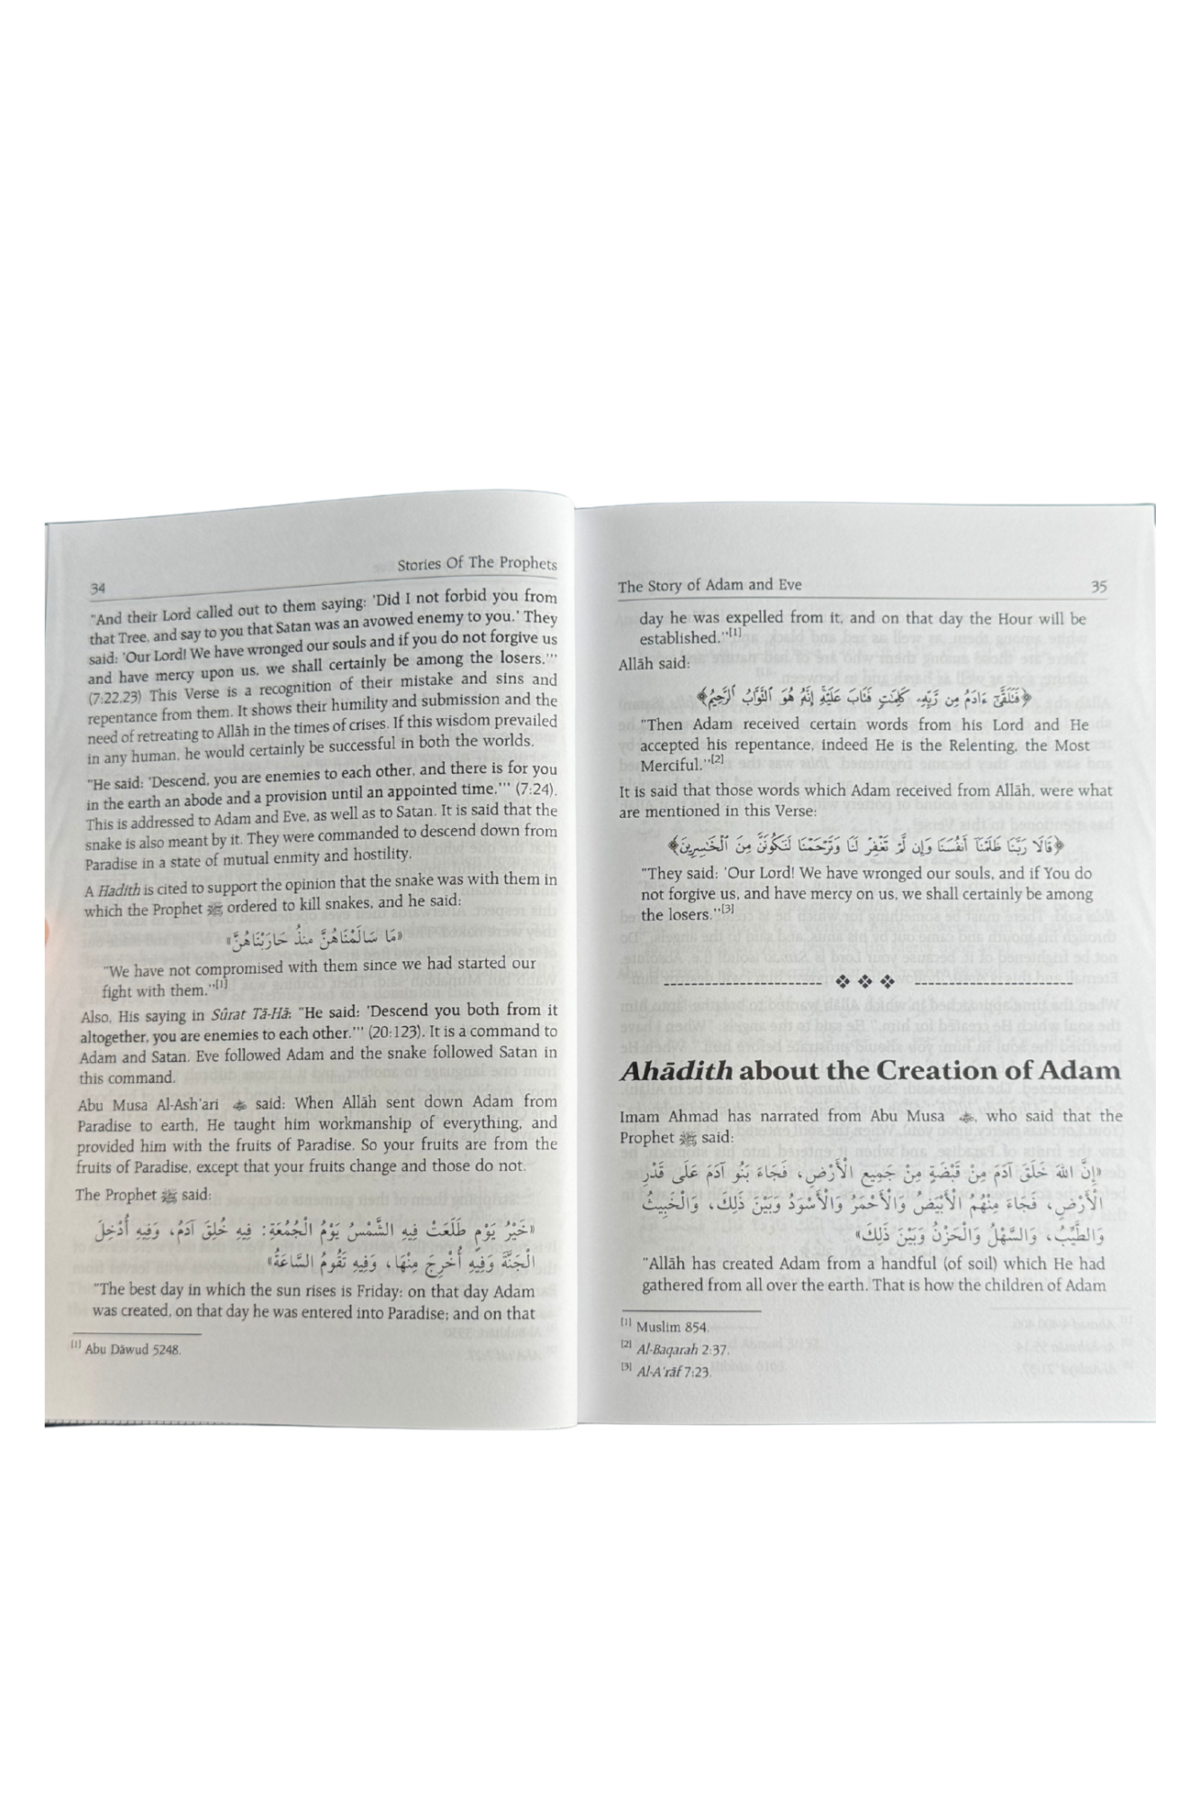 34
Stories Of The Prophets
"And their Lord called out to them saying: 'Did I not forbid you from
that Tree, and say to you that Satan was an avowed enemy to you.' They
said: 'Our Lord! We have wronged our souls and if you do not forgive us
and have mercy upon us, we shall certainly be among the losers.'"
(7:22,23) This Verse is a recognition of their mistake and sins and
repentance from them. It shows their humility and submission and the
need of retreating to Allāh in the times of crises. If this wisdom prevailed
in any human, he would certainly be successful in both the worlds.
"He said: 'Descend, you are enemies to each other, and there is for you
in the earth an abode and a provision until an appointed time.'" (7:24).
This is addressed to Adam and Eve, as well as to Satan. It is said that the
snake is also meant by it. They were commanded to descend down from
Paradise in a state of mutual enmity and hostility.
A Hadith is cited to support the opinion that the snake was with them in
which the Prophet ﷺ ordered to kill snakes, and he said:
«مَا سَالَمْنَاهُنَّ منذُ حَارَبْنَاهُنَّ»
"We have not compromised with them since we had started our
fight with them."[1]
Also, His saying in Sûrat Tā-Hā: "He said: 'Descend you both from it
altogether, you are enemies to each other.'" (20:123). It is a command to
Adam and Satan. Eve followed Adam and the snake followed Satan in
this command.
Abu Musa Al-Ash'ari said: When Allāh sent down Adam from
Paradise to earth, He taught him workmanship of everything, and
provided him with the fruits of Paradise. So your fruits are from the
fruits of Paradise, except that your fruits change and those do not.
The Prophet ﷺ said:
«خَيْرُ يَوْمٍ طَلَعَتْ فِيهِ الشَّمْسُ يَوْمُ الْجُمُعَةِ: فِيهِ خُلِقَ آدَمُ، وَفِيهِ أُدْخِلَ
الْجَنَّةَ وَفِيهِ أُخْرِجَ مِنْهَا، وَفِيهِ تَقُومُ السَّاعَةُ»
"The best day in which the sun rises is Friday: on that day Adam
was created, on that day he was entered into Paradise; and on that
[1] Abu Dāwud 5248.
The Story of Adam and Eve
35
day he was expelled from it, and on that day the Hour will be
established."[1]
Allāh said:
﴿فَتَلَقَّىٰٓ ءَادَمُ مِن رَّبِّهِۦ كَلِمَٰتٍ فَتَابَ عَلَيْهِ إِنَّهُۥ هُوَ ٱلتَّوَّابُ ٱلرَّحِيمُ﴾
"Then Adam received certain words from his Lord and He
accepted his repentance, indeed He is the Relenting, the Most
Merciful."[2]
It is said that those words which Adam received from Allāh, were what
are mentioned in this Verse:
﴿قَالَا رَبَّنَا ظَلَمْنَآ أَنفُسَنَا وَإِن لَّمْ تَغْفِرْ لَنَا وَتَرْحَمْنَا لَنَكُونَنَّ مِنَ ٱلْخَٰسِرِينَ﴾
"They said: 'Our Lord! We have wronged our souls, and if You do
not forgive us, and have mercy on us, we shall certainly be among
the losers."[3]
Ahādith about the Creation of Adam
Imam Ahmad has narrated from Abu Musa , who said that the
Prophet ﷺ said:
«إِنَّ اللهَ خَلَقَ آدَمَ مِنْ قَبْضَةٍ مِنْ جَمِيعِ الْأَرْضِ، فَجَاءَ بَنُو آدَمَ عَلَى قَدْرِ
الْأَرْضِ، فَجَاءَ مِنْهُمُ الْأَبْيَضُ وَالْأَحْمَرُ وَالْأَسْوَدُ وَبَيْنَ ذَلِكَ، وَالْخَبِيثُ
وَالطَّيِّبُ، وَالسَّهْلُ وَالْحَزْنُ وَبَيْنَ ذَلِكَ»
"Allāh has created Adam from a handful (of soil) which He had
gathered from all over the earth. That is how the children of Adam
[1] Muslim 854.
[2] Al-Baqarah 2:37.
[3] Al-A'rāf 7:23.